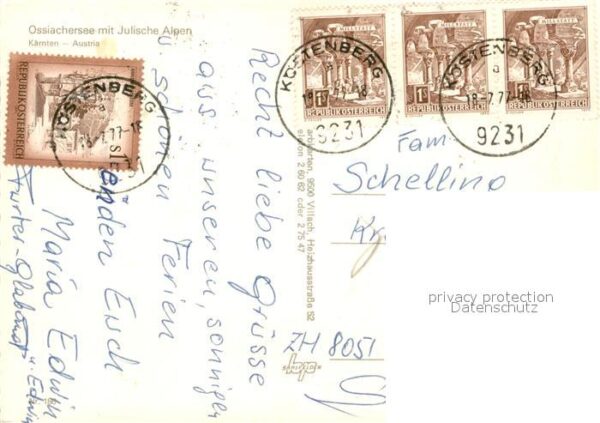 Ossiachersee mit Julische Alpen
Kärnten — Austria
REPUBLIK ÖSTERREICH
KÖSTENBERG
a
18-7.77-18
9231
MILLSTATT
1S
REPUBLIK ÖSTERREICH
MILLSTATT
1S
REPUBLIK ÖSTERREICH
MILLSTATT
REPUBLIK ÖSTERREICH
KÖSTENBERG
a
18-7.77-18
9231
KÖSTENBERG
a
18-7.77-18
9231
Recht liebe Grüsse
aus unseren, sonnigen
u. schönen Ferien
senden Euch
Maria Edwin
u. Edwin
9500 Villach, Heizhausstraße 52
2 60 62 oder 2 75 47
Fam.
Schellino
Kr
ZH 8051
privacy protection
Datenschutz